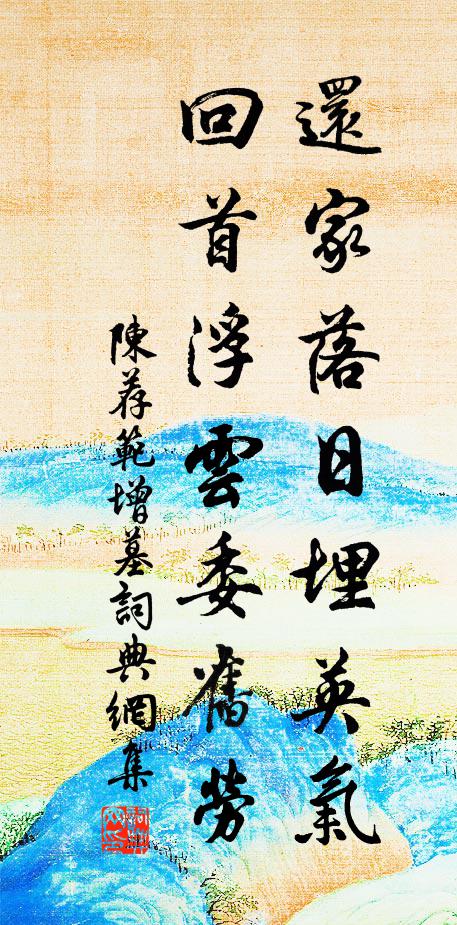 還家落日埋英氣
回首浮雲委舊勞
陳荐範增墓詞典網集